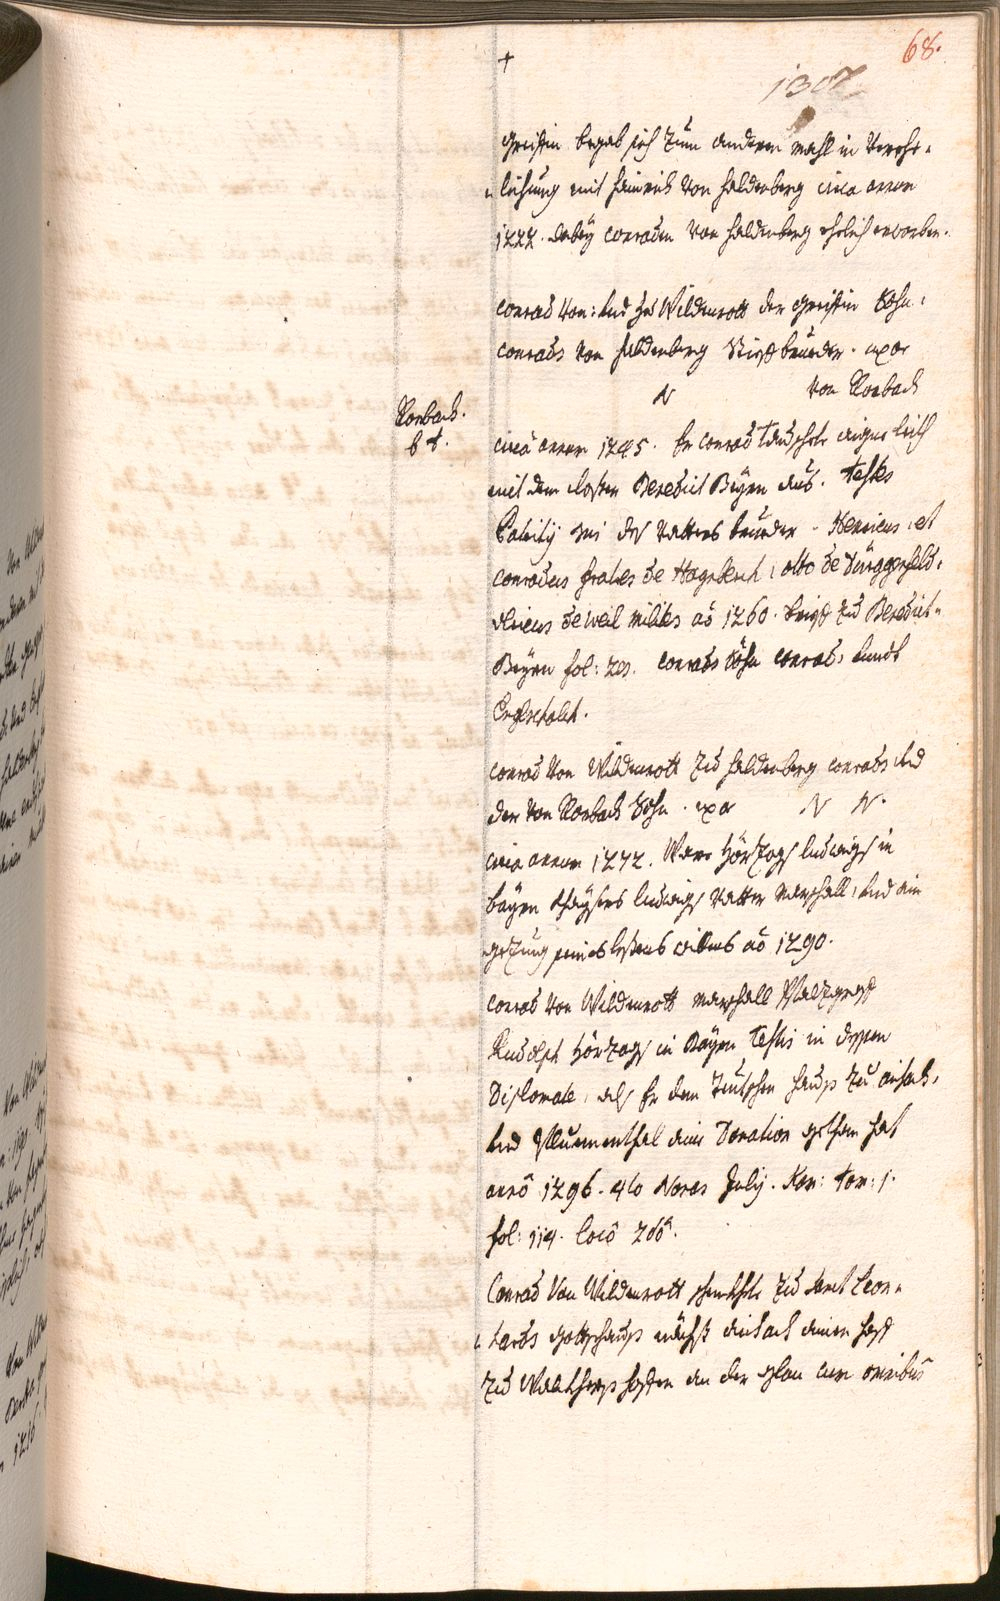 68.
+
1307
Greiffin begab sich zum anderen mahl in Verehe-
lichung mit Hainrich von Haldenberg circa annum
1222. dabey Conraden von Haldenberg ehrlich erworben.
Conrad von: und zu Wildenrott der Greiffin Sohn,
Conrads von Haldenberg Stieffbrueder. uxor
N von Rorbach
Rorbach.
b t.
circa annum 1245. Er Conrad tauschete aigne leith
mit dem Closter Benedict Beyrn aus. Testes
des Vatters brueder. Henricus, et
Conradus fratres de Hagebech, Otto de Türggenfeld,
Ulricus de Weil milites aõ 1260. brieff zu Benedict-
Beyrn fol: 201. Conrads Söhn Conrad, undt
Engelschalch.
Conrad von Wildenrott zu Haldenberg Conrads und
der von Rorbach Sohn. uxor N N.
circa annum 1272. Ware Hörzogs Ludwigs in
Bayrn Khaysers Ludwigs Vatter Marschall, und ein
gezeug seines lesten willens aõ 1290.
Conrad von Wildenrott Marschall Pfalzgraff
Rudolph Hörzogs in Bayrn Testis in dessen
Diplomate, als Er dem Teutschen Hauss zu Aichach,
und Bluementhal eine Donation gethan hat
anno 1296. 4to Nonas July. Tom: 1.
fol: 114. loco 2do.
Conrad von Wildenrott schenkhete zu Sanct Leon-
hards Gottshauss nächst Aichach einen Hoff
zu Walkhershoffen an der Glon cum omnibus